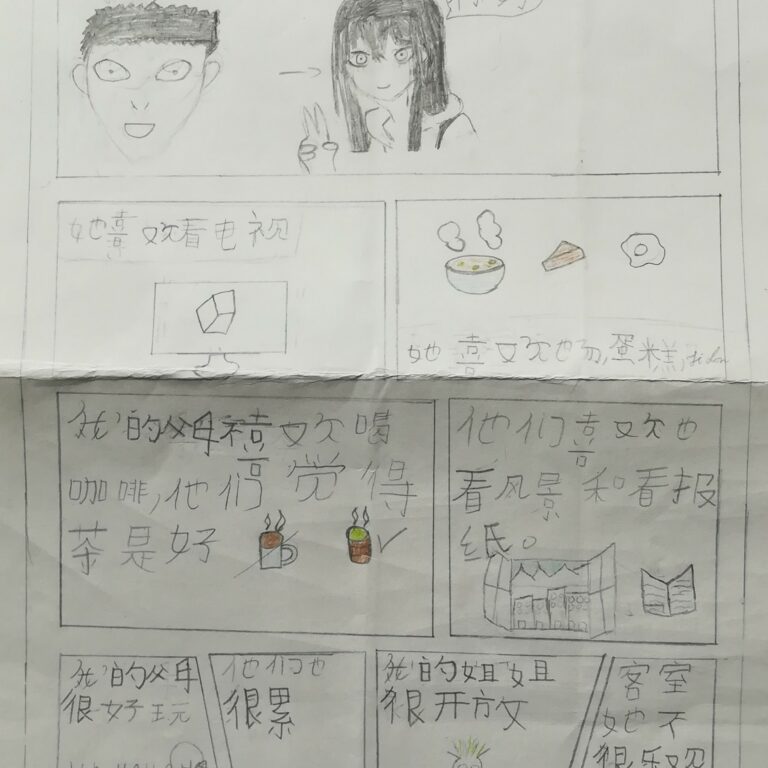 她喜欢看电视
她喜欢也
蛋糕,
我的父母喜欢喝
咖啡,他们觉得
茶是好
他们喜欢也
看风景和看报
纸。
我的父母
很好玩
他们也
很累
我的姐姐
很开放
客室
她不
很乐观